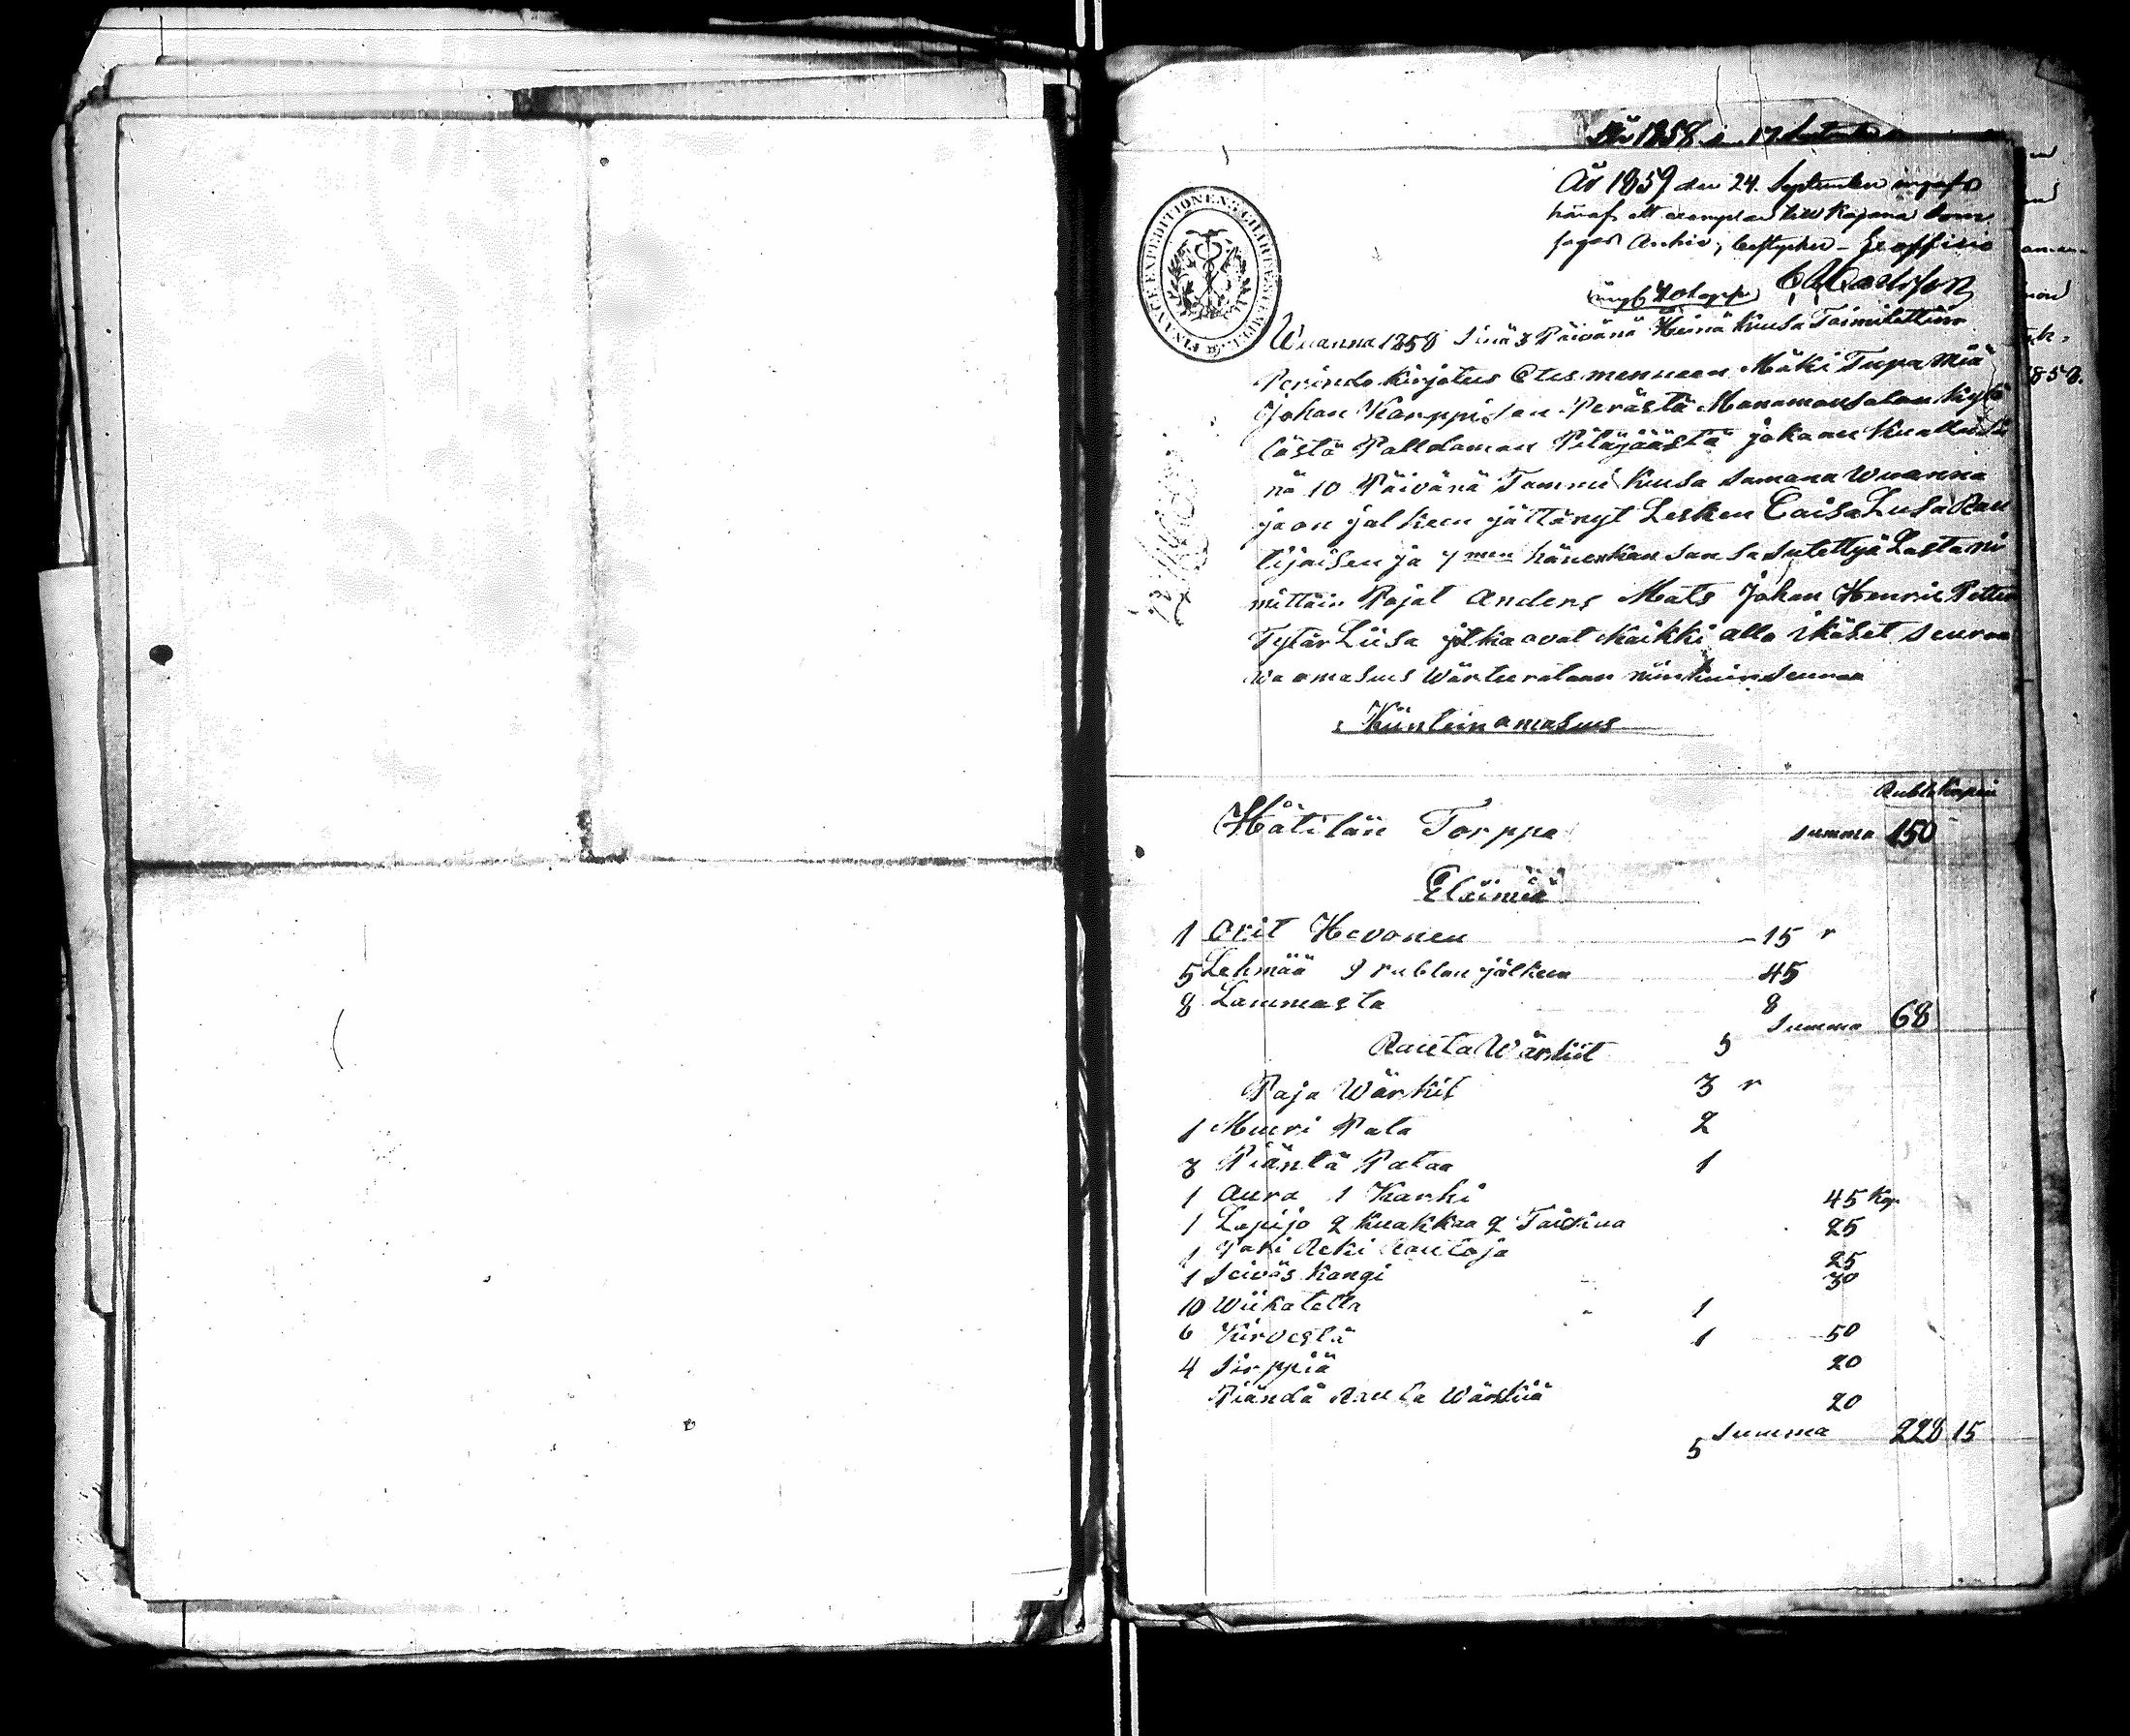 År 1858 den 17
År 1859 den 24. September ingafs
häraf ett exemplar till Kajana Dom
sagas Archiv, betygher - Ex officio
Wuanna 1858 Sinä 3 Päivänä Heinä Kuusa Toimitettiin
Perindo Kirjotus Edes menneen Mäki Tupa Miä
Johan Karppisen Perästä Manamansalan Kylä
lästä Palldamon Pitäjäästä joka on Kuollut Si
nä 10 Päivänä Tammi Kuusa samana Wuanna
ja on jälkeen jättänyt Lesken Caisa Lusa Rau
tijaisen ja 7 men hänenkansansa Sutettyä Lasta ni
mittäin Pojat Anders Mats Johan Henric Petter
Tytär Liisa jotka ovat Kaikki alla ikäset seuraa
wa omasuus Wärterataan niinkuin seuraa
Kiinteinomasuus
Rubla Kopeei
Hätilän Torppa summa 150
Eläimiä
1 Orit Hevonen 15 r
5 Lehmää 9 rublan jälkeen 45
8 Lammasta 8
Summa 68
Rauta Wärkiit 5
Paja Wärkit 3 r
1 Muuri Pata 2
3 Piäntä Pataa 1
1 Aura 1 Karhi 45 Kop
1 Lapijo 2 Kuakkaa 2 25
1 Pari Reki Rautoja 25
1 Seiväs Kangi 30
10 Wiikatetta 1
6 Kirvestä 1 50
4 Sirppiä 20
Piändä Rauta Wärkiiä 20
5 Summa 228 15